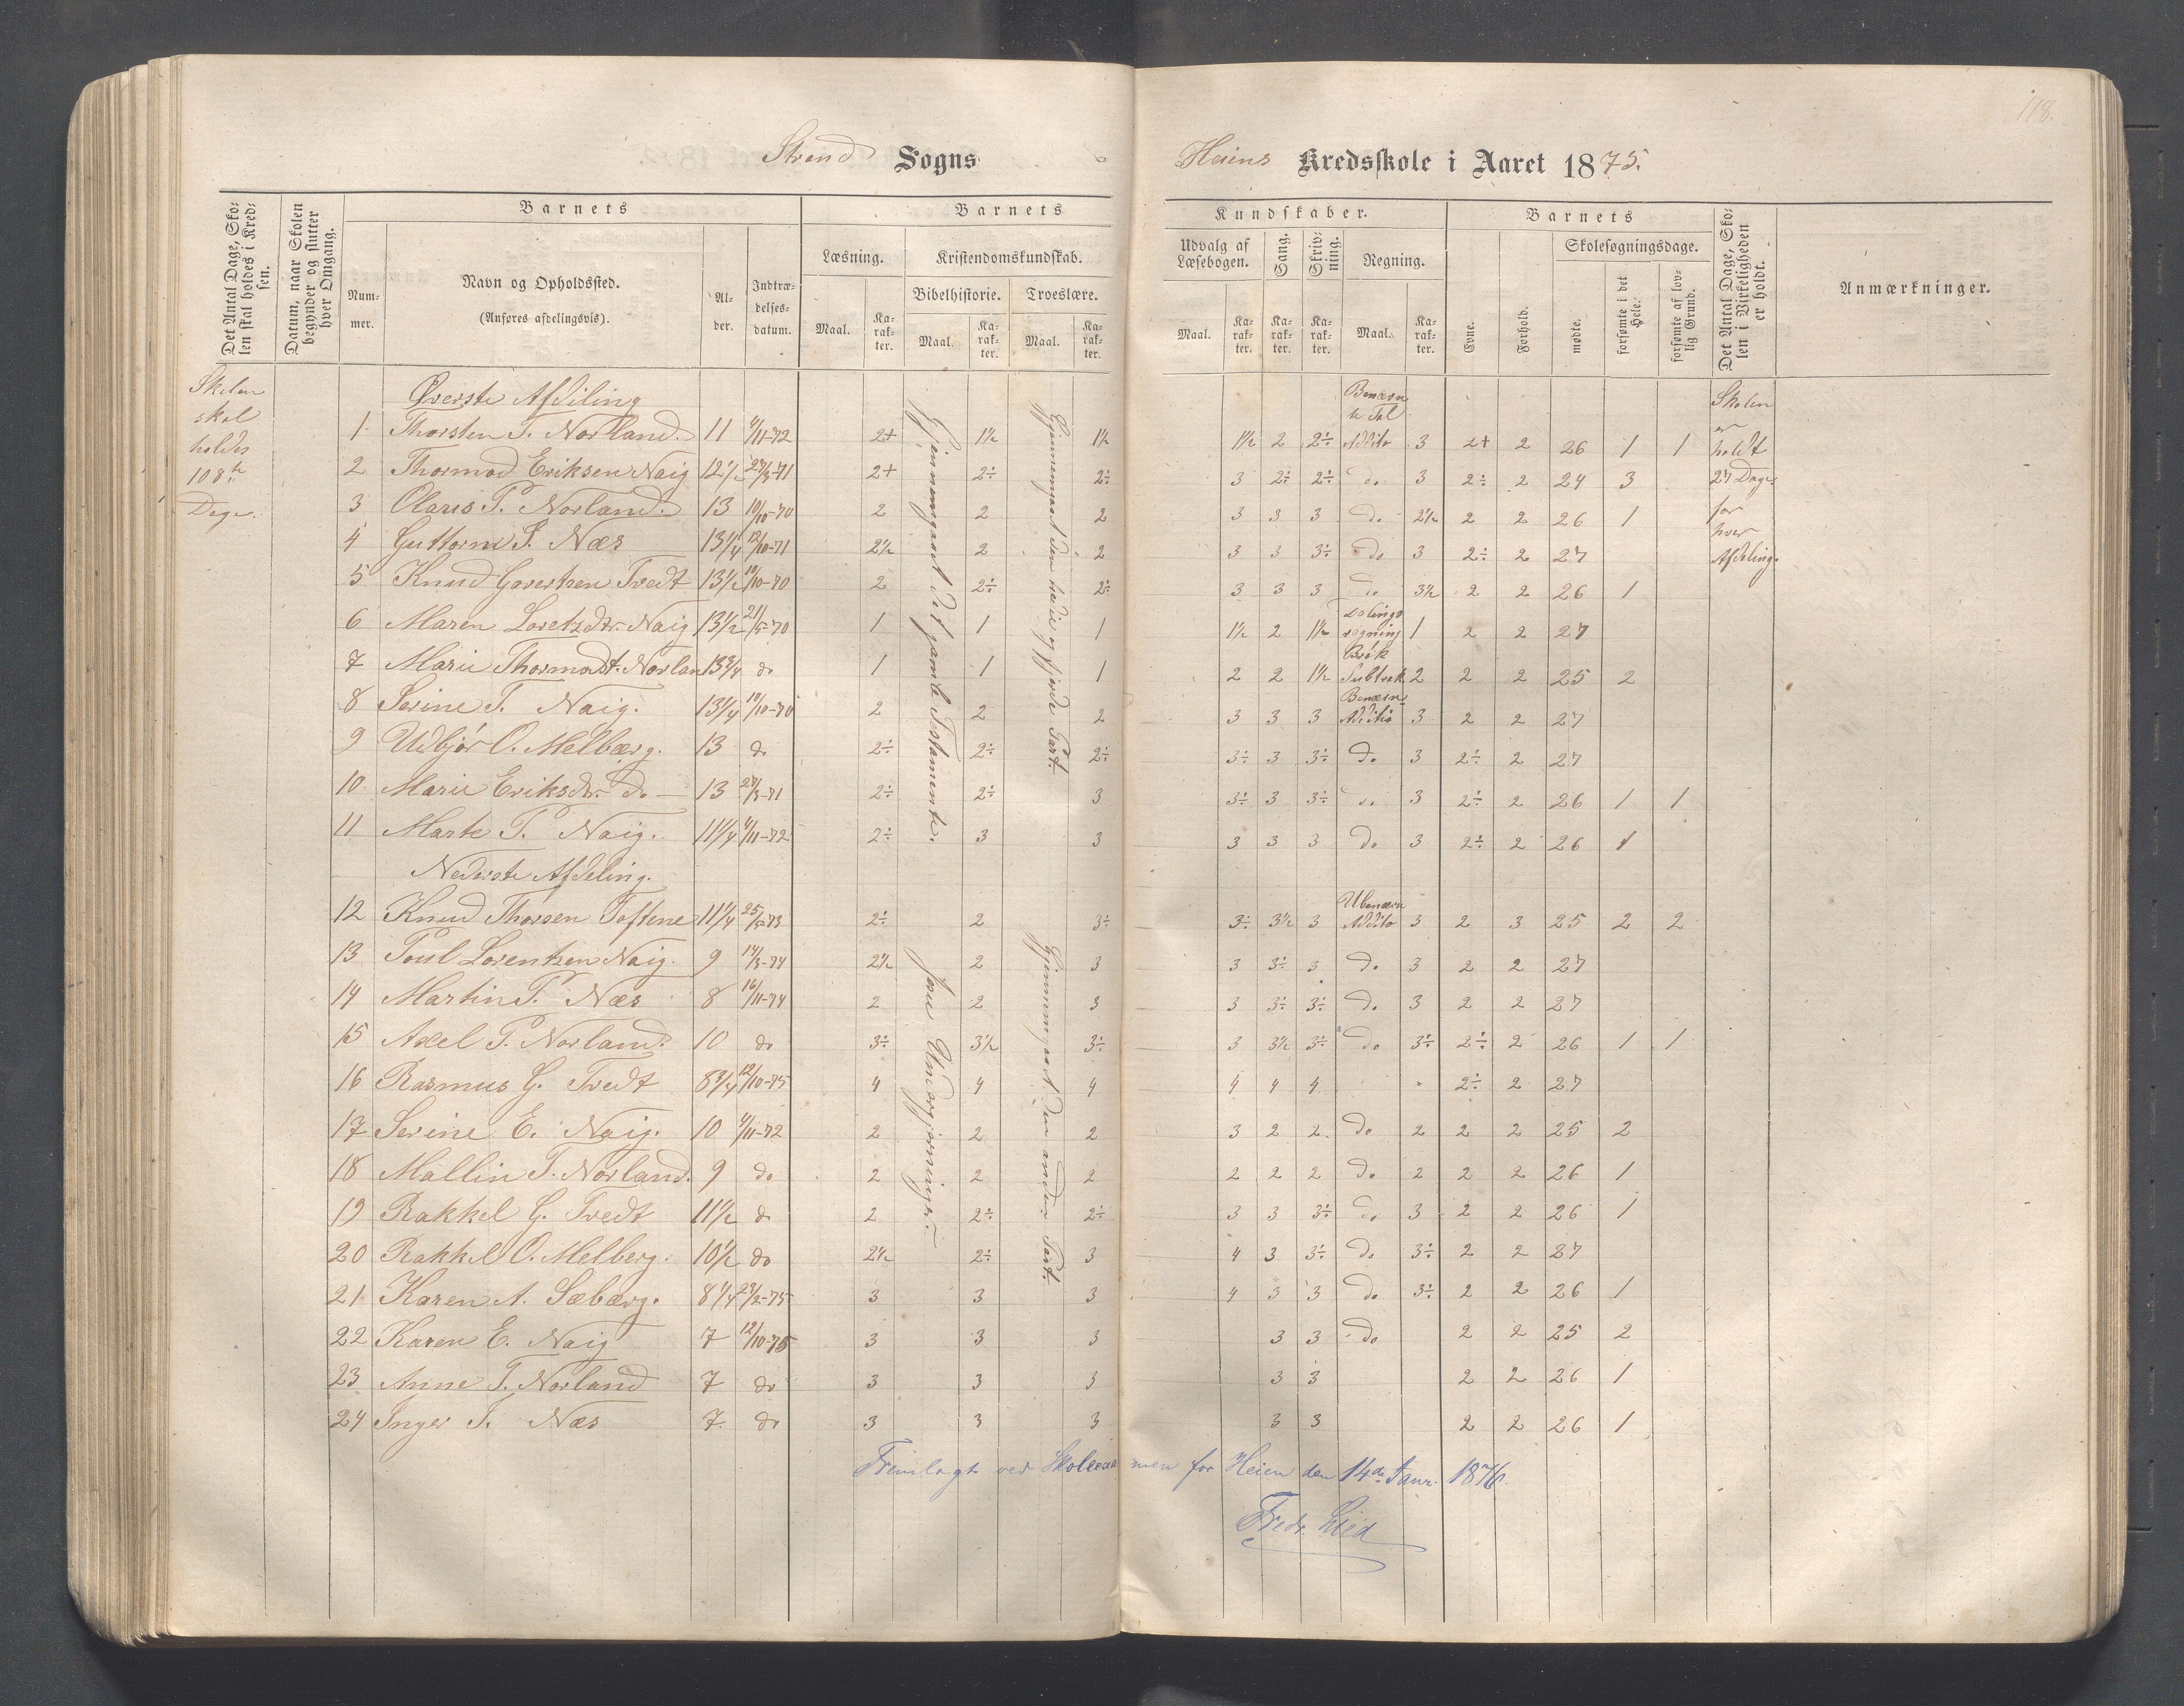 118.
Strand Sogns
Heiens Kredsskole i Aaret 1875.
Det Antal Dage, Skolen skal holdes i Kredsen.
Datum, naar Skolen begynder og slutter hver Omgang.
Barnets
Nummer.
Navn og Opholdssted.
(Anføres afdelingsvis).
Alder.
Indtrædelsesdatum.
Barnets Kundskaber.
Læsning.
Maal. Karakter.
Kristendomskundskab.
Bibelhistorie. Troeslære.
Maal. Karakter. Maal. Karakter.
Udvalg af Læsebogen.
Maal. Karakter.
Sang. Karakter.
Skrivning. Karakter.
Regning.
Maal. Karakter.
Barnets
Evne. Forhold.
Skolesøgningsdage.
mødte. forsømte i det Hele. forsømte af lovlig Grund.
Det Antal Dage, Skolen i Virkeligheden er holdt.
Anmærkninger.
Skolen skal holdes 108te Dage.
Øverste Afdeling
Gjennemgaaet det gamle Testamente.
Gjennemgaaet den tredie og fjerde Part.
Skolen er holdt 27 Dage for hver Afdeling.
1 Thorsten T. Norland. 11 4/11-72 2+ 1½ 1½ 1½ 2 2÷ Benævnte Tal Additio 3 2+ 2 26 1 1
2 Thormod Eriksen Naig 12½ 27/3-71 2+ 2÷ 2÷ 3 2÷ 2÷ do 3 2÷ 2 24 3
3 Olaus P. Norland. 13 10/10-70 2 2 2 3 3 3 do 2½ 2 2 26 1
4 Guttorm S. Næs 13¼ 12/10-71 2½ 2 2 3 3 3÷ do 3 2÷ 2 27
5 Knud Govertsen Tvedt 13½ 10/10-70 2 2÷ 2÷ 3 3 3 do 3½ 2 2 26 1
6 Maren Loretzdtr. Naig 13½ 21/5-70 1 1 1 1½ 2 1½ regning 1 2 2 27
7 Marie Thormodt. Norlan 13¾ do 1 1 1 2 2 1½ Brøk Subtrak 2 2 2 25 2
8 Serine T. Naig. 13¼ 10/10-70 2 2 2 3 3 3 Benævn Additio 3 2 2 27
9 Udbjør O. Melbærg. 13 do 2÷ 2÷ 2÷ 3÷ 3 3÷ do 3 2÷ 2 27
10 Marie Eriksdtr. do 13 27/3-71 2÷ 2÷ 3 3÷ 3 3÷ do 3 2÷ 2 26 1 1
11 Marte P. Naig. 11¼ 4/11-72 2÷ 3 3 3 3 3 do 3 2÷ 2 26 1
Nederste Afdeling.
Jesu Undergjerninger.
Gjennemgaaet den anden Part.
12 Knud Thorsen Toftene 11¼ 25/5-73 2÷ 2 3÷ 3÷ 3½ 3 Ubenævn Additio 3 2 3 25 2 2
13 Poul Lorentzen Naig. 9 14/3-74 2½ 2 3 3 3÷ 3 do 3 2 2 27
14 Martin P. Næs 8 16/11-74 2 2 3 3 3÷ 3÷ do 3 2 2 27
15 Axel P. Norland. 10 do 3÷ 3½ 3÷ 3 3½ 3÷ do 3÷ 2÷ 2 26 1 1
16 Rasmus G. Tvedt 8¾ 12/10-75 4 4 4 4 4 4 2÷ 2 27
17 Serine E. Naig. 10 4/11-72 2 2 2 3 2 2 do 2 2 2 25 2
18 Mallin T. Norland. 9 do 2 2 2 2 2 2 do 2 2 2 26 1
19 Rakkel G. Tvedt 11½ do 2 2÷ 2÷ 3 3 3÷ do 3 2 2 26 1
20 Rakkel O. Melberg. 10½ do 2½ 2÷ 3 4 3 3÷ do 3÷ 2 2 27
21 Karen A. Sæbærg. 8¼ 23/2-75 3 3 3 4 3 3 do 3÷ 2 2 26 1
22 Karen E. Naig 7 12/10-75 3 3 3 3 3 do 2 2 25 2
23 Anne T. Norland 7 do 3 3 3 3 3 2 2 26 1
24 Inger T. Næs 7. do 3 3 3 3 3 2 2 26 1
Fremlagt ved Skoleexamen for Heien den 14de Janr. 1876.
Fredr. Lied